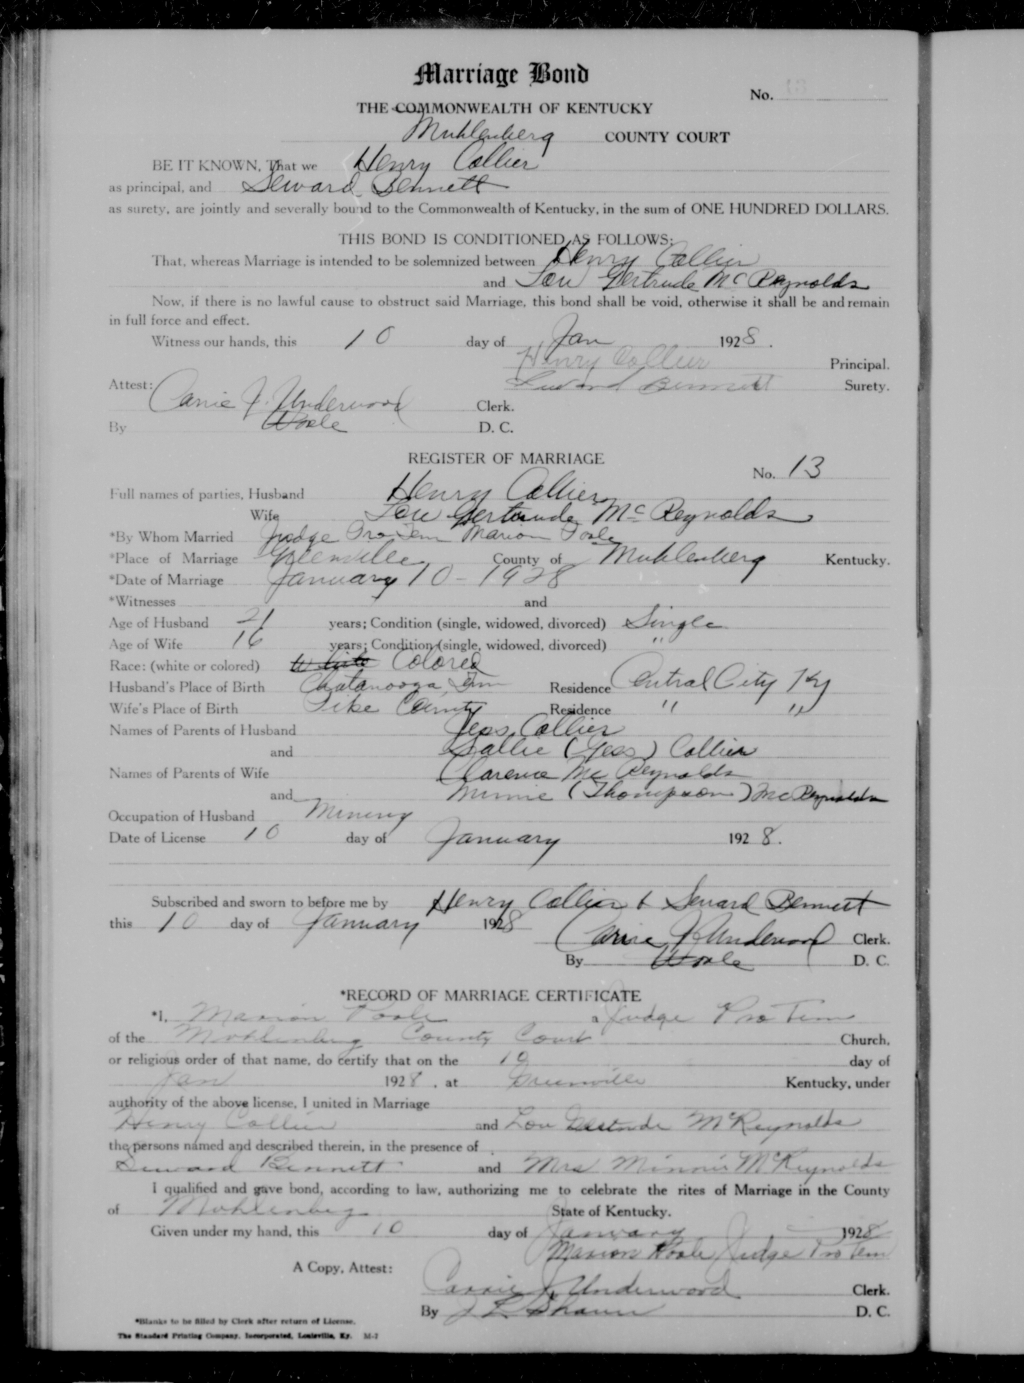 Marriage Bond
No. 13
THE COMMONWEALTH OF KENTUCKY
Muhlenberg COUNTY COURT
BE IT KNOWN, That we Henry Collier
as principal, and Seward Bennett
as surety, are jointly and severally bound to the Commonwealth of Kentucky, in the sum of ONE HUNDRED DOLLARS.
THIS BOND IS CONDITIONED AS FOLLOWS:
That, whereas Marriage is intended to be solemnized between Henry Collier
and Lou Gertrude McReynolds
Now, if there is no lawful cause to obstruct said Marriage, this bond shall be void, otherwise it shall be and remain
in full force and effect.
Witness our hands, this 10 day of Jan 1928.
Henry Collier Principal.
Attest: Seward Bennett Surety.
Carrie J. Underwood Clerk.
By D. C.
REGISTER OF MARRIAGE
No. 13
Full names of parties, Husband Henry Collier
Wife Lou Gertrude McReynolds
*By Whom Married Judge Pro Tem Marion Poole
*Place of Marriage Greenville County of Muhlenberg Kentucky.
*Date of Marriage January 10 - 1928
*Witnesses and
Age of Husband 21 years; Condition (single, widowed, divorced) Single
Age of Wife 16 years; Condition (single, widowed, divorced) "
Race: (white or colored) White Colored
Husband's Place of Birth Chatanooga, Tenn Residence Central City Ky
Wife's Place of Birth Pike County Residence " "
Names of Parents of Husband Jess Collier
and Sallie ( ) Collier
Names of Parents of Wife Clarence McReynolds
and Minnie (Thompson) McReynolds
Occupation of Husband Mining
Date of License 10 day of January 1928.
Subscribed and sworn to before me by Henry Collier & Seward Bennett
this 10 day of January 1928
Carrie J. Underwood Clerk.
By D. C.
*RECORD OF MARRIAGE CERTIFICATE
*I, Marion Poole a Judge Pro Tem
of the Mohlenberg County Court Church,
or religious order of that name, do certify that on the 10 day of
Jan 1928, at Greenville Kentucky, under
authority of the above license, I united in Marriage
Henry Collier and Lou Gertrude McReynolds
the persons named and described therein, in the presence of
Seward Bennett and Mrs Minnie McReynolds
I qualified and gave bond, according to law, authorizing me to celebrate the rites of Marriage in the County
of Mohlenberg State of Kentucky.
Given under my hand, this 10 day of January 1928
Marion Poole Judge Pro Tem
A Copy, Attest:
Carrie J. Underwood Clerk.
By J. L. D. C.
*Blanks to be filled by Clerk after return of License.
The Standard Printing Company, Incorporated, Louisville, Ky. M-7